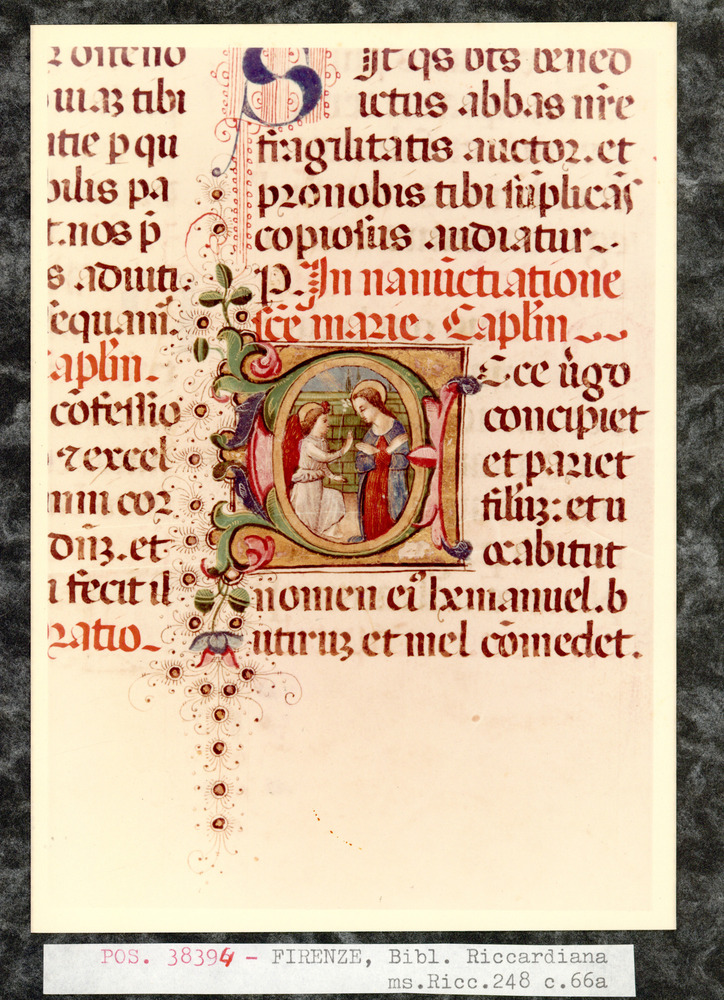 uiaz tibi
ntie p qu
bilis pa
t.nos p̄
s adiuti.
sequam̄.
Caplm̄.
cōfessio
⁊ excel
mm cor
dn̄z. et
i fecit il
Oratio
It qs oīs bened
ictus abbas nr̄e
fragilitatis auctor. et
pronobis tibi sup̄licās
copiosus audiatur.
P. In nanūctiatione
scē marie. Caplm̄
Ecce ūgo
concipiet
et pariet
filiūz: et u
ocabitut
nomen eiꝰ hemanuel. b
utirūz et mel cōmedet.
POS. 38394 - FIRENZE, Bibl. Riccardiana
ms.Ricc.248 c.66a